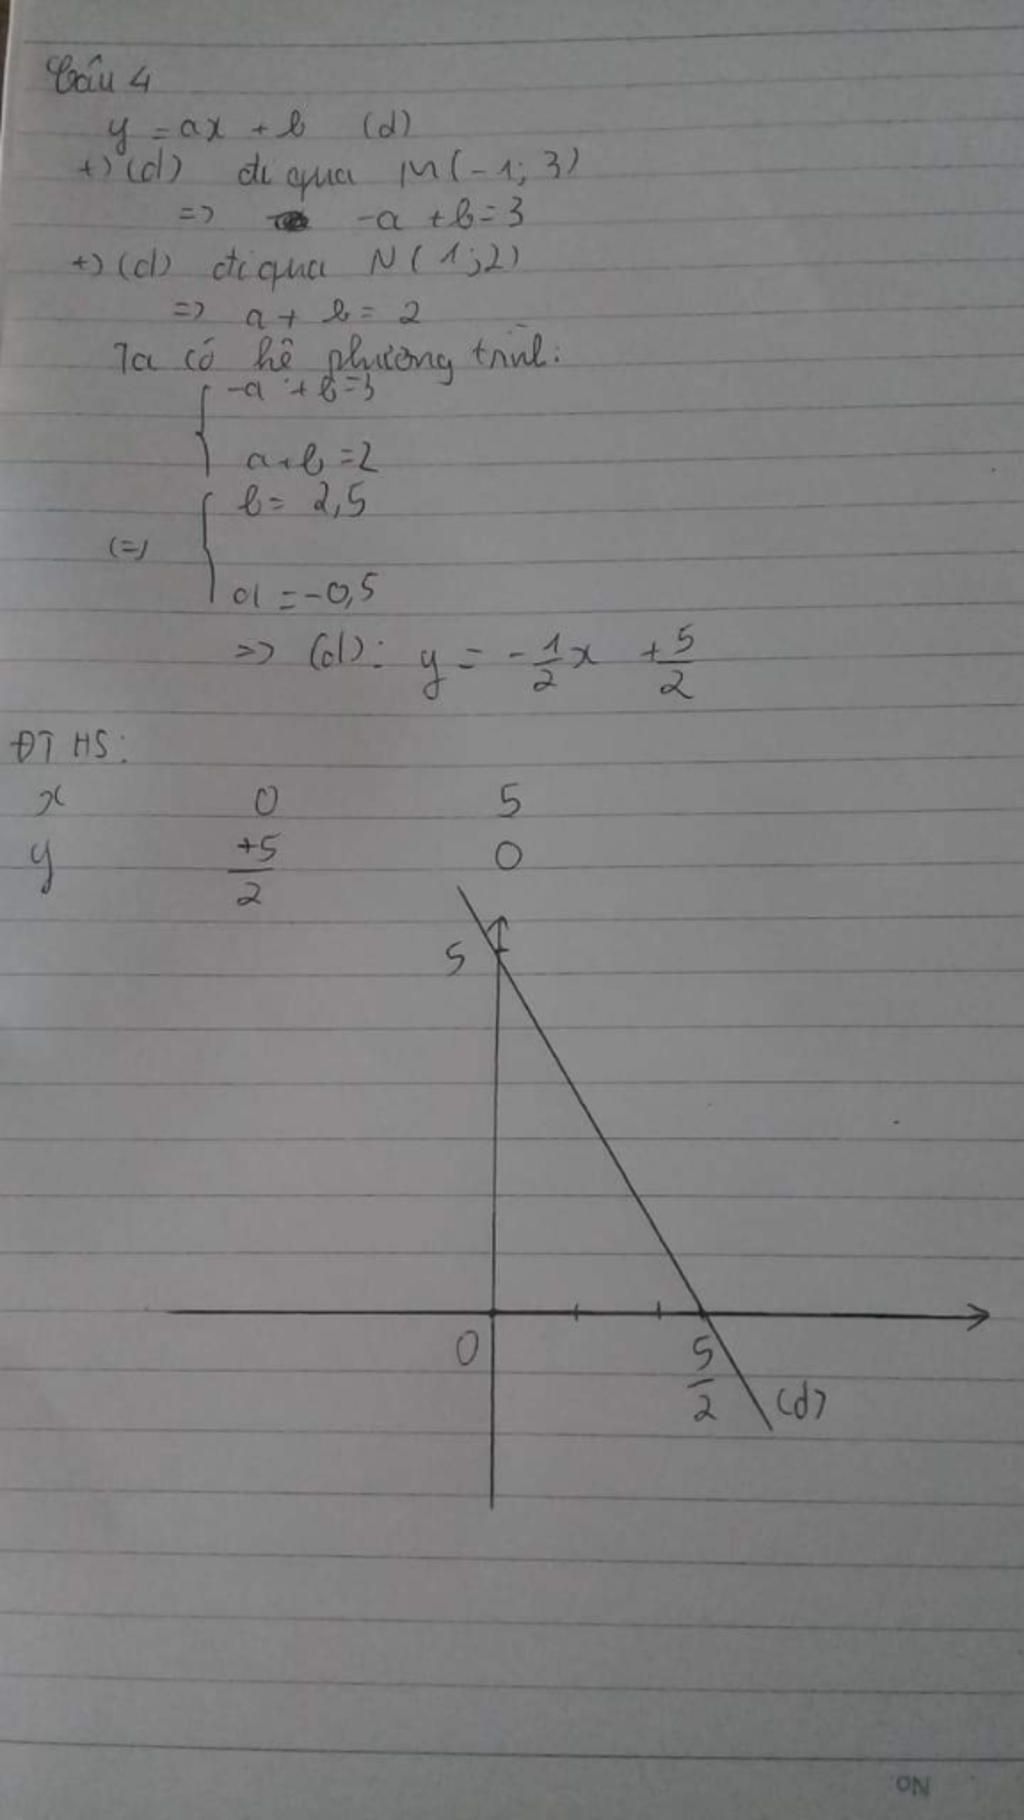 Câu 4
y = ax + b (d)
+) (d) đi qua M(-1; 3)
=> -a + b = 3
+) (d) đi qua N(1; 2)
=> a + b = 2
Ta có hệ phương trình:
{ -a + b = 3
a + b = 2
(=) { b = 2,5
a = -0,5
=> (d): y = -1/2 x + 5/2
ĐT HS:
x 0 5
y +5/2 0
5
0
5/2
(d)
No